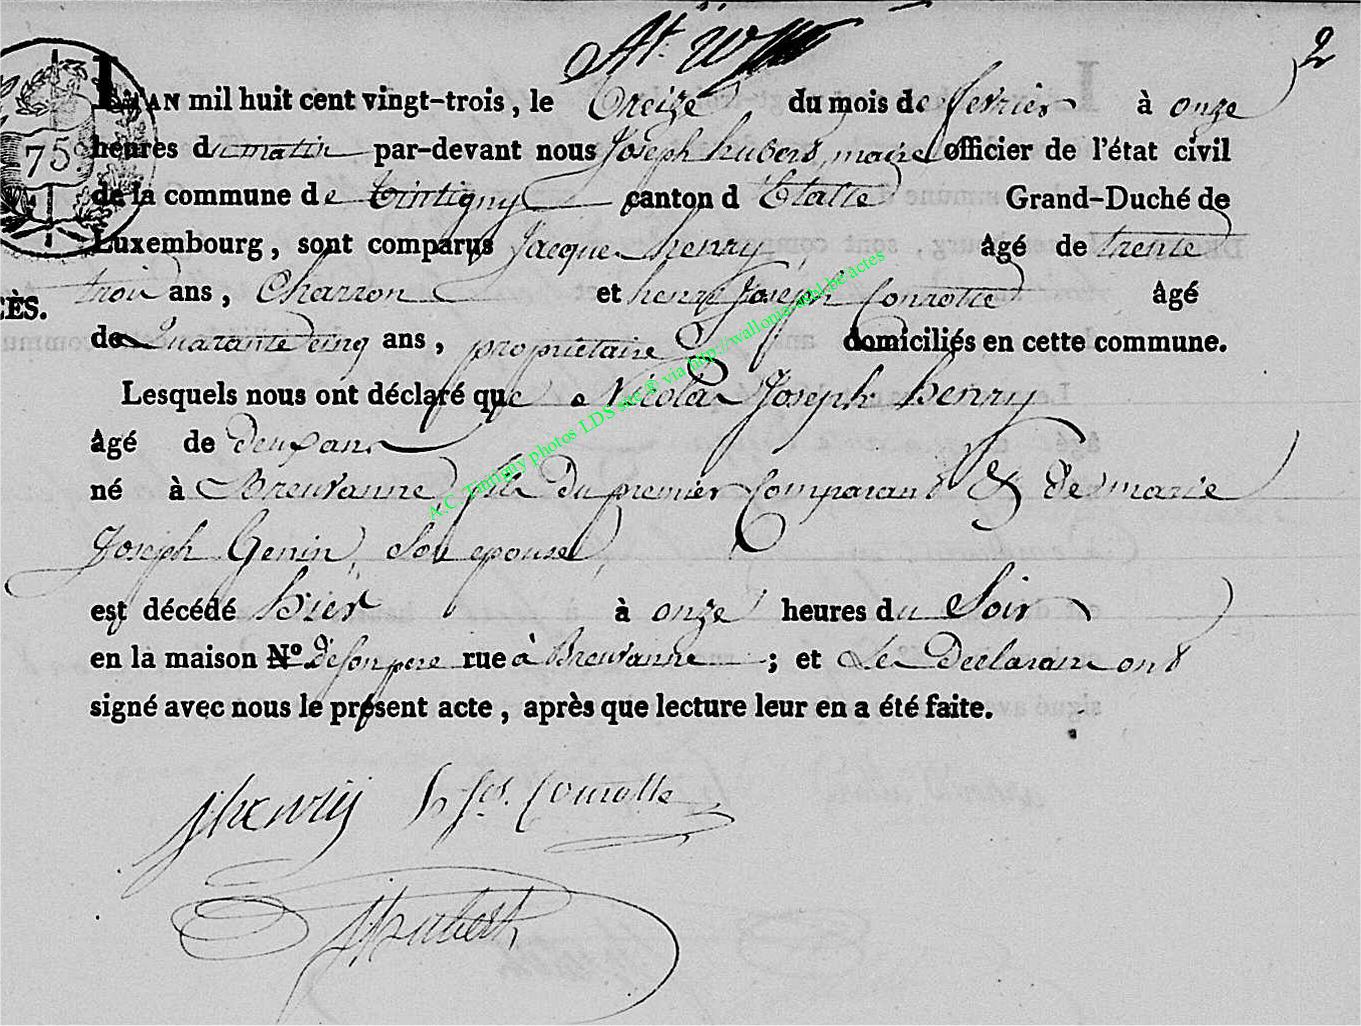 2
L'AN mil huit cent vingt-trois, le treize du mois de fevrier à onze
75
heures du matin par-devant nous Joseph hubert, maire officier de l'état civil
de la commune de tintigny canton d'Etalle Grand-Duché de
Luxembourg, sont comparus Jacque henry, âgé de trente
trois ans, Charron et henry Joseph Conrotte âgé
CÈS.
de Quarante cinq ans, propriétaire domiciliés en cette commune.
Lesquels nous ont déclaré que Nicolas Joseph henry
âgé de deux ans
né à Breuvanne, fils du premier Comparant & de marie
Joseph Genin, son epouse,
est décédé hier à onze heures du Soir
en la maison N.º de son pere rue à Breuvanne ; et Les Declarans ont
signé avec nous le présent acte, après que lecture leur en a été faite.
A.C. Tintigny photos LDS site ® via http://wallonia-asbl.be/actes
J henry h Js. Conrotte
J Hubert